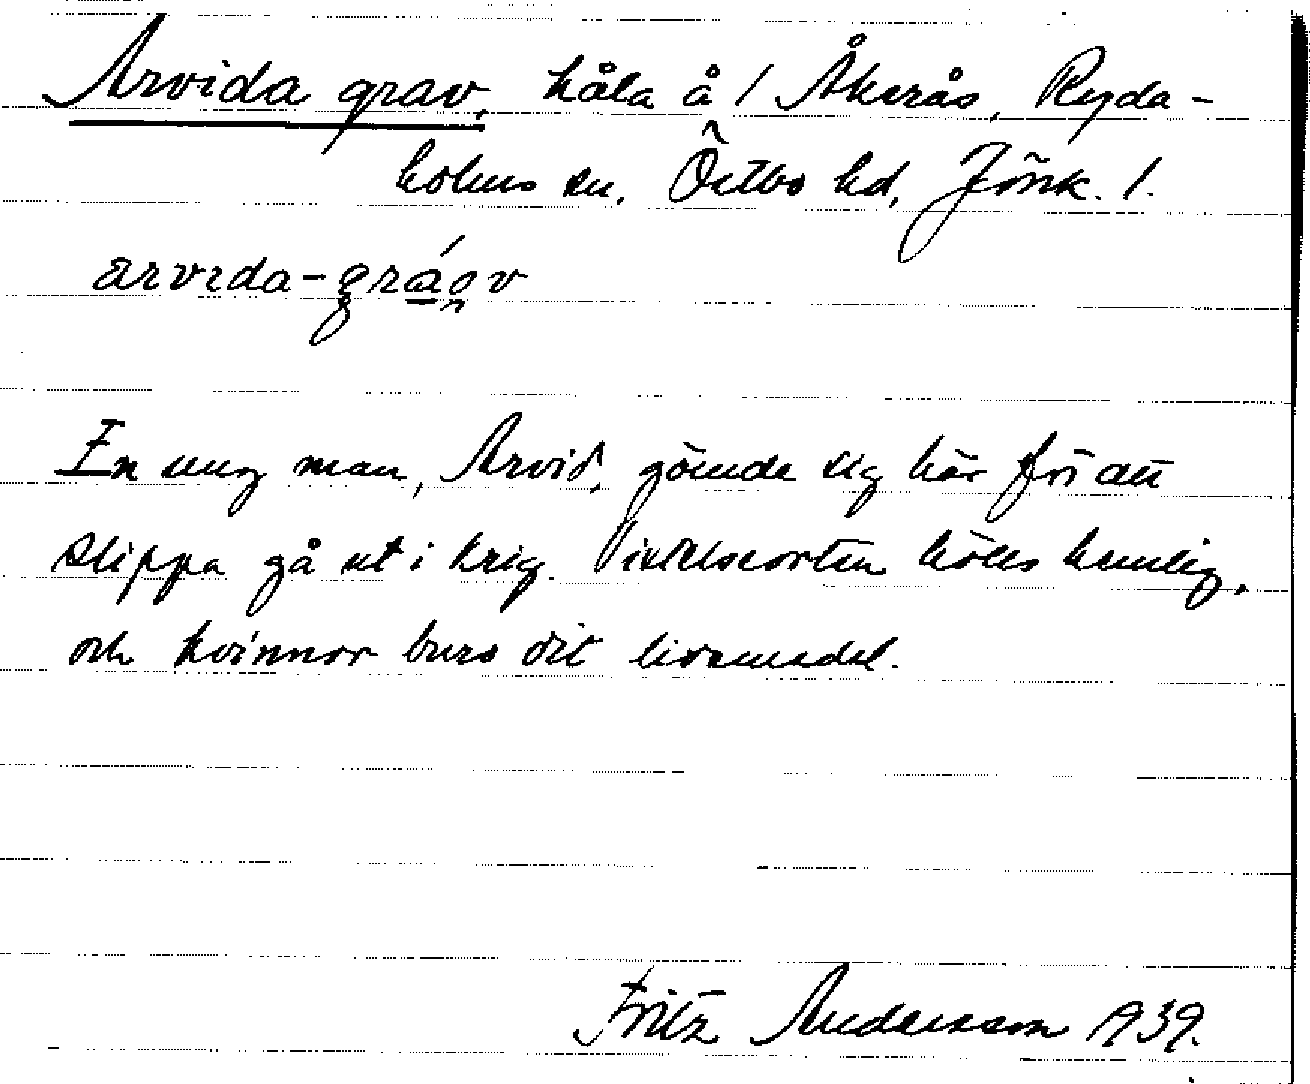 Arvida grav, håla å / Åkerås, Ryda-
holms sn, Östbo hd, Jönk. l.
arvida-gráov
En ung man, Arvid, gömde sig här för att
slippa gå ut i krig. Vistelseorten hölls hemlig,
och kvinnor buro dit livsmedel.
Fritz Andersson 1939.